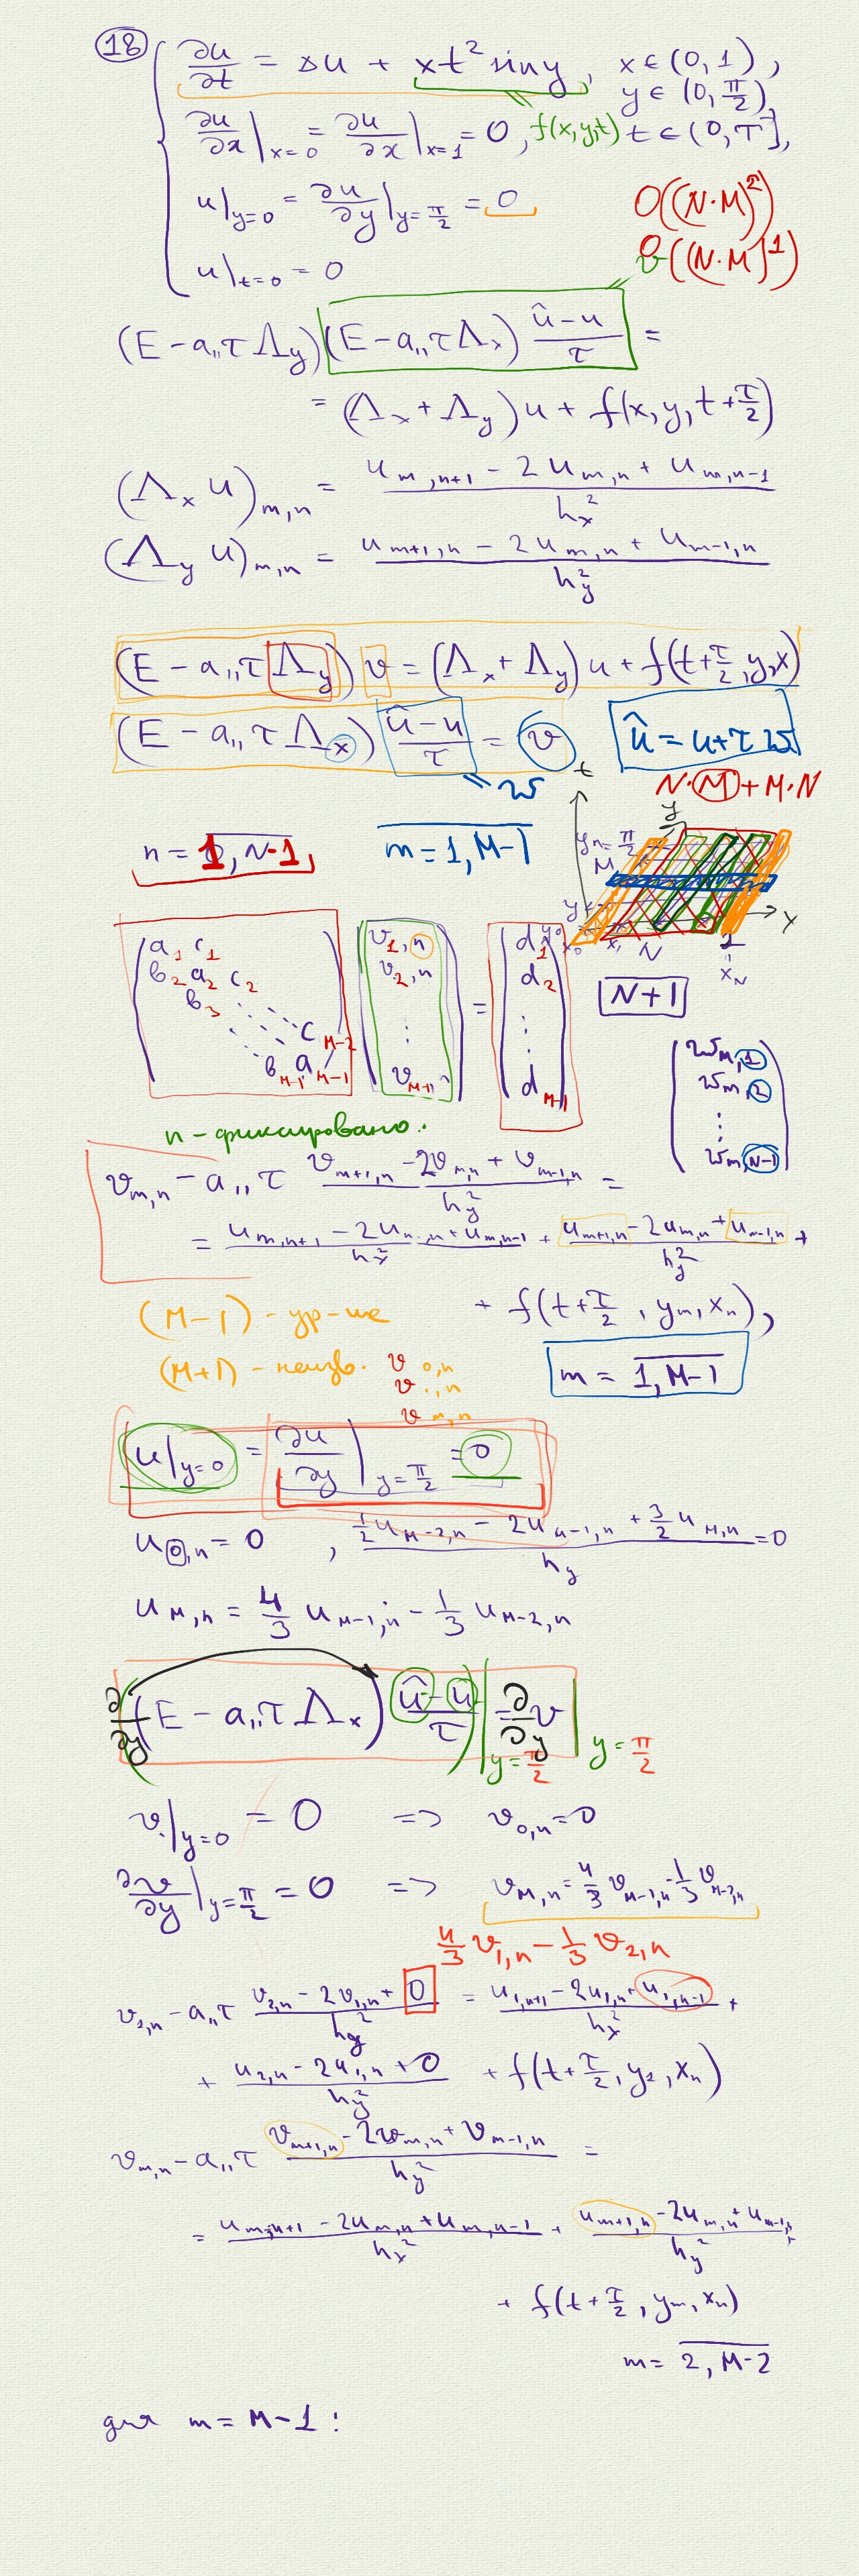 18
∂u/∂t = Δu + xt² sin y, x ∈ (0, 1),
y ∈ (0, π/2)
∂u/∂x|x=0 = ∂u/∂x|x=1 = 0, f(x,y,t) t ∈ (0, T],
u|y=0 = ∂u/∂y|y=π/2 = 0
O((N·M)²)
O((N·M)¹)
u|t=0 = 0
(E - a₁₁τΛy)(E - a₁₁τΛx) (û - u)/τ =
= (Λx + Λy)u + f(x, y, t + τ/2)
(Λx u)m,n = (um,n+1 - 2um,n + um,n-1)/hx²
(Λy u)m,n = (um+1,n - 2um,n + um-1,n)/hy²
(E - a₁₁τΛy) v = (Λx + Λy)u + f(t + τ/2, y, x)
(E - a₁₁τΛx) (û - u)/τ = v û = u + τw
w
N·M + M·N
n = 1, N-1, m = 1, M-1
t
y
yM = π/2
M
x
x₀ x₁ N 1
xN
a₁ c₁ v₁,n d₁
b₂ a₂ c₂ v₂,n = d₂
N+1
b₃
cM-2
bM-1 aM-1 vM-1,n dM-1
wm,1
wm,2
wm,N-1
n - фиксировано.
vm,n - a₁₁τ (vm+1,n - 2vm,n + vm-1,n)/hy² =
= (um,n+1 - 2um,n + um,n-1)/hx² + (um+1,n - 2um,n + um-1,n)/hy² +
+ f(t + τ/2, ym, xn),
(M-1) - ур-ие
(M+1) - неизв. v₀,n
v₁,n
vM,n
m = 1, M-1
u|y=0 = ∂u/∂y|y=π/2 = 0
u₀,n = 0, (½uM-2,n - 2uM-1,n + 3/2 uM,n)/hy = 0
uM,n = 4/3 uM-1,n - 1/3 uM-2,n
∂/∂y ((E - a₁₁τΛx) (û - u)/τ)|y=π/2 = ∂/∂y v|y=π/2
v|y=0 = 0 => v₀,n = 0
∂v/∂y|y=π/2 = 0 => vM,n = 4/3 vM-1,n - 1/3 vM-2,n
4/3 v₁,n - 1/3 v₂,n
v₁,n - a₁₁τ (v₂,n - 2v₁,n + 0)/hy² = (u₁,n+1 - 2u₁,n + u₁,n-1)/hx² +
+ (u₂,n - 2u₁,n + 0)/hy² + f(t + τ/2, y₁, xn)
vm,n - a₁₁τ (vm+1,n - 2vm,n + vm-1,n)/hy² =
= (um,n+1 - 2um,n + um,n-1)/hx² + (um+1,n - 2um,n + um-1,n)/hy² +
+ f(t + τ/2, ym, xn)
m = 2, M-2
для m = M-1 :